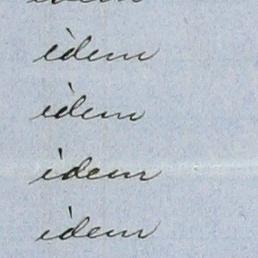 idem
idem
idem
idem